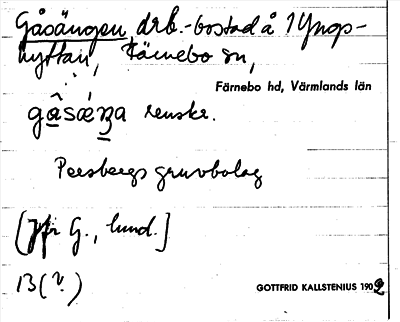 Gåsängen, drb.-bostad å Yngs-
hyttan, Färnebo sn,
Färnebo hd, Värmlands län
renske.
Persbergs gruvbolag
[Jfr G., lund.]
B(?)
GOTTFRID KALLSTENIUS 1902